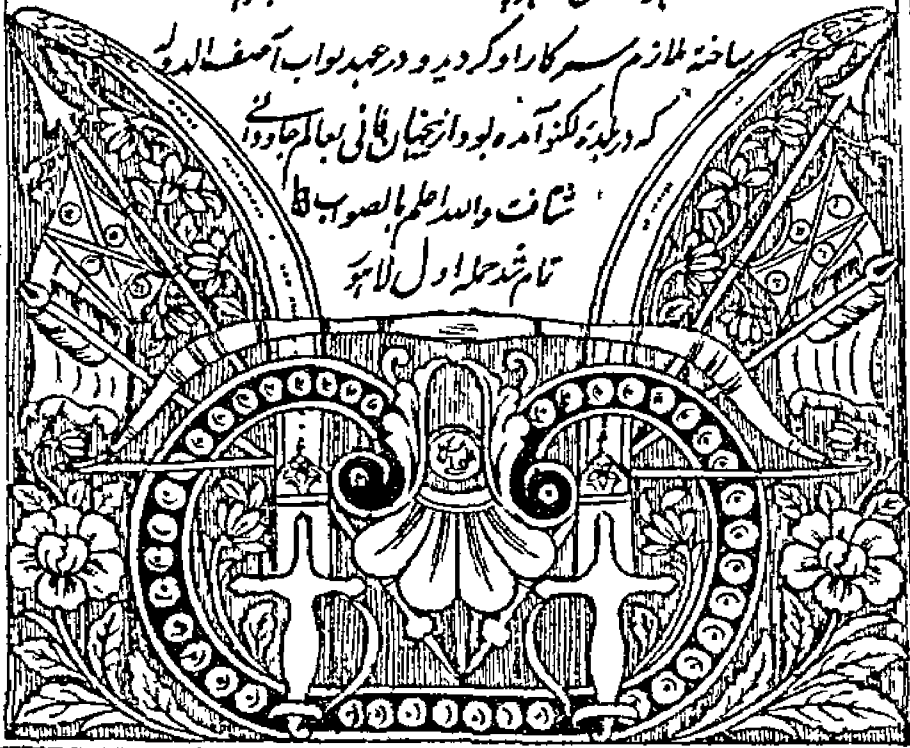 ساخته ملازم سرکار او گردید و در عهد نواب آصف الدوله
که در بلده لکنو آمده بود از ینجهان فانی بعالم جاودانی
شتافت والله اعلم بالصواب
تمام شد جمله اول